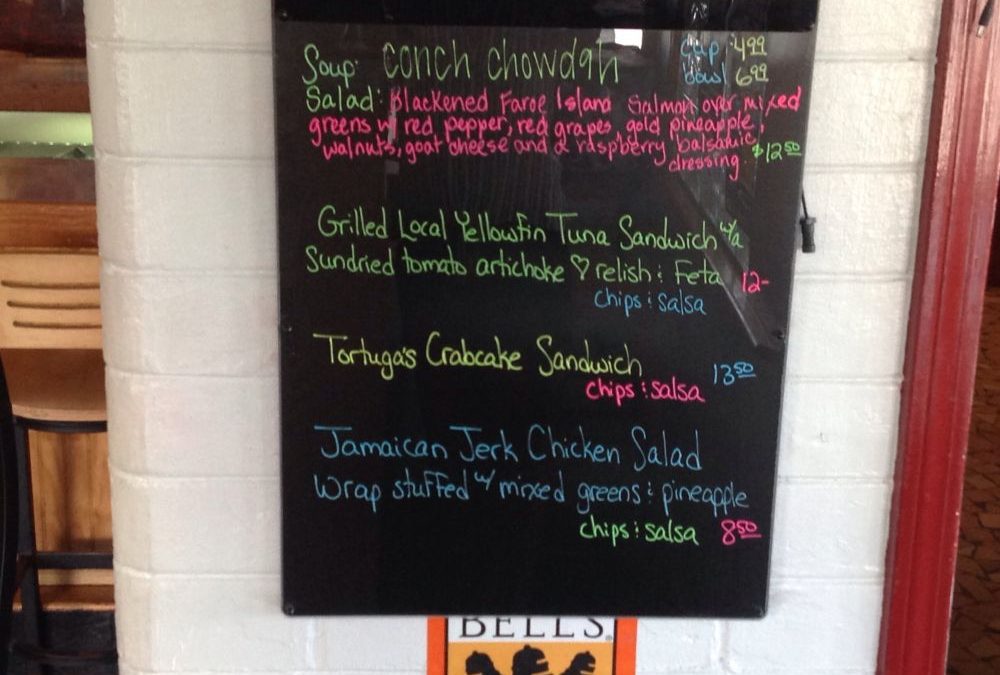 Soup: Conch Chowdah cup 4.99
bowl 6.99
Salad: Blackened Faroe Island Salmon over mixed
greens w/ red pepper, red grapes, gold pineapple,
walnuts, goat cheese and a raspberry balsamic $12.50
dressing
Grilled Local Yellowfin Tuna Sandwich w/a
Sundried tomato artichoke ♡ relish & Feta 12-
chips & salsa
Tortuga's Crabcake Sandwich 13.50
chips & salsa
Jamaican Jerk Chicken Salad
Wrap stuffed w/ mixed greens & pineapple
chips & salsa 8.50
BELL'S